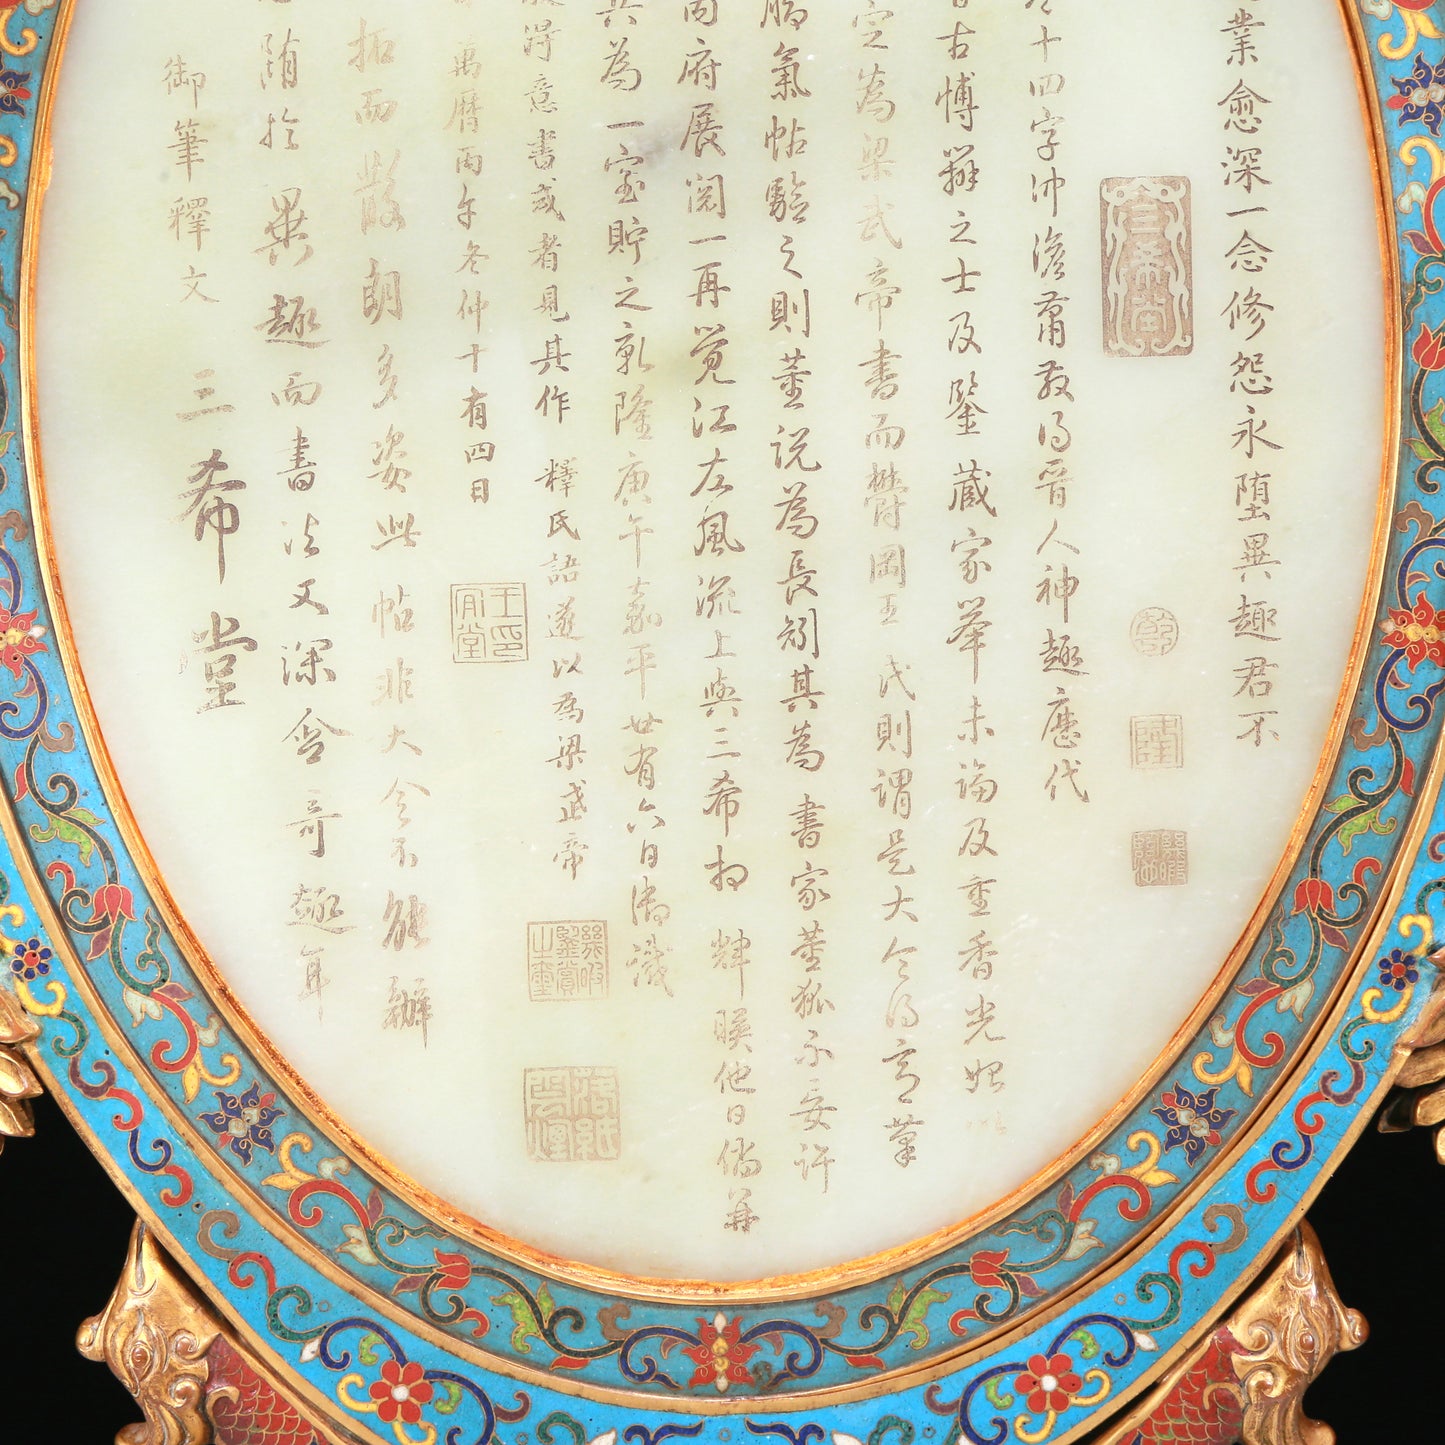 業愈深一念修怨永墮異趣君不
三希堂
乾
隆
幾暇臨池
十四字沖澹蕭散得晉人神趣歷代
古博辯之士及鑒藏家舉未論及董香光始以
定為梁武帝書而鬱岡王氏則謂是大令得意筆
腦氣帖驗之則董說為長矧其為書家董狐不妄許
內府展閱一再覺江左風流上與三希相輝映他日倘並
其為一室貯之乾隆庚午嘉平廿有六日御識
得意書或者見其作釋氏語遂以為梁武帝
幾暇鑒賞之璽
落紙雲煙
萬曆丙午冬仲十有四日
王肯堂印
拓而散朗多姿此帖非大令不能辦
墮於異趣而書法又深含奇趣耳
御筆釋文 三希堂